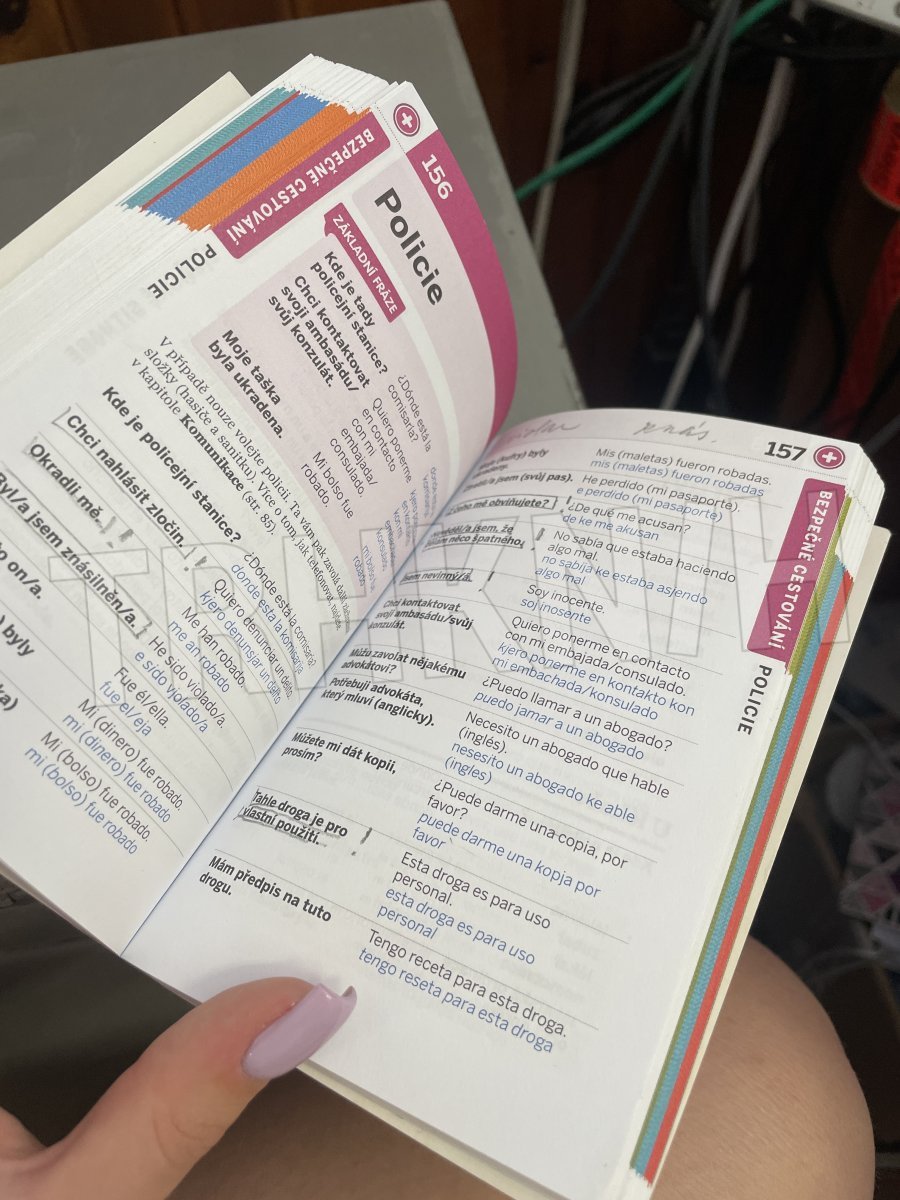 156
Policie
ZÁKLADNÍ FRÁZE
Kde je tady
policejní stanice?
¿Dónde está la
comisaría?
Chci kontaktovat
svoji ambasádu/
svůj konzulát.
Quiero ponerme
en contacto
con mi
embajada/
consulado.
Moje taška
byla ukradena.
Mi bolso fue
robado.
BEZPEČNÉ CESTOVÁNÍ
POLICIE
V případě nouze volejte policii. Ta vám pak zavolá další
složky (hasiče a sanitku). Více o tom, jak telefonovat,
v kapitole Komunikace (str. 85).
Kde je policejní stanice?
¿Dónde está la comisaría?
donde está la komisarija
Chci nahlásit zločin.
Quiero denunciar un delito.
kjero denunsjar un delito
Okradli mě.
Me han robado.
me an robado
Byl/a jsem znásilněn/a.
He sido violado/a.
e sido vijolado/a
on/a.
Fue él/ella.
fue el/eja
byly
Mi (dinero) fue robado.
mi (dinero) fue robado
Mi (bolso) fue robado.
mi (bolso) fue robado
157
BEZPEČNÉ CESTOVÁNÍ
POLICIE
byly
Mis (maletas) fueron robadas.
mis (maletas) fueron robadas
jsem (svůj pas).
He perdido (mi pasaporte).
e perdido (mi pasaporte)
mě obviňujete?
¿De qué me acusan?
de ke me akusan
jsem, že
něco špatného.
No sabía que estaba haciendo
algo mal.
no sabija ke estaba asjendo
algo mal
Jsem nevinný/á.
Soy inocente.
soj inosente
Chci kontaktovat
svoji ambasádu/svůj
konzulát.
Quiero ponerme en contacto
con mi embajada/consulado.
kjero ponerme en kontakto kon
mi embachada/konsulado
Můžu zavolat nějakému
advokátovi?
¿Puedo llamar a un abogado?
puedo jamar a un abogado
Potřebuji advokáta,
který mluví (anglicky).
Necesito un abogado que hable
(inglés).
nesesito un abogado ke able
(ingles)
Můžete mi dát kopii,
prosím?
¿Puede darme una copia, por
favor?
puede darme una kopja por
favor
Tahle droga je pro
vlastní použití.
Esta droga es para uso
personal.
esta droga es para uso
personal
Mám předpis na tuto
drogu.
Tengo receta para esta droga.
tengo reseta para esta droga